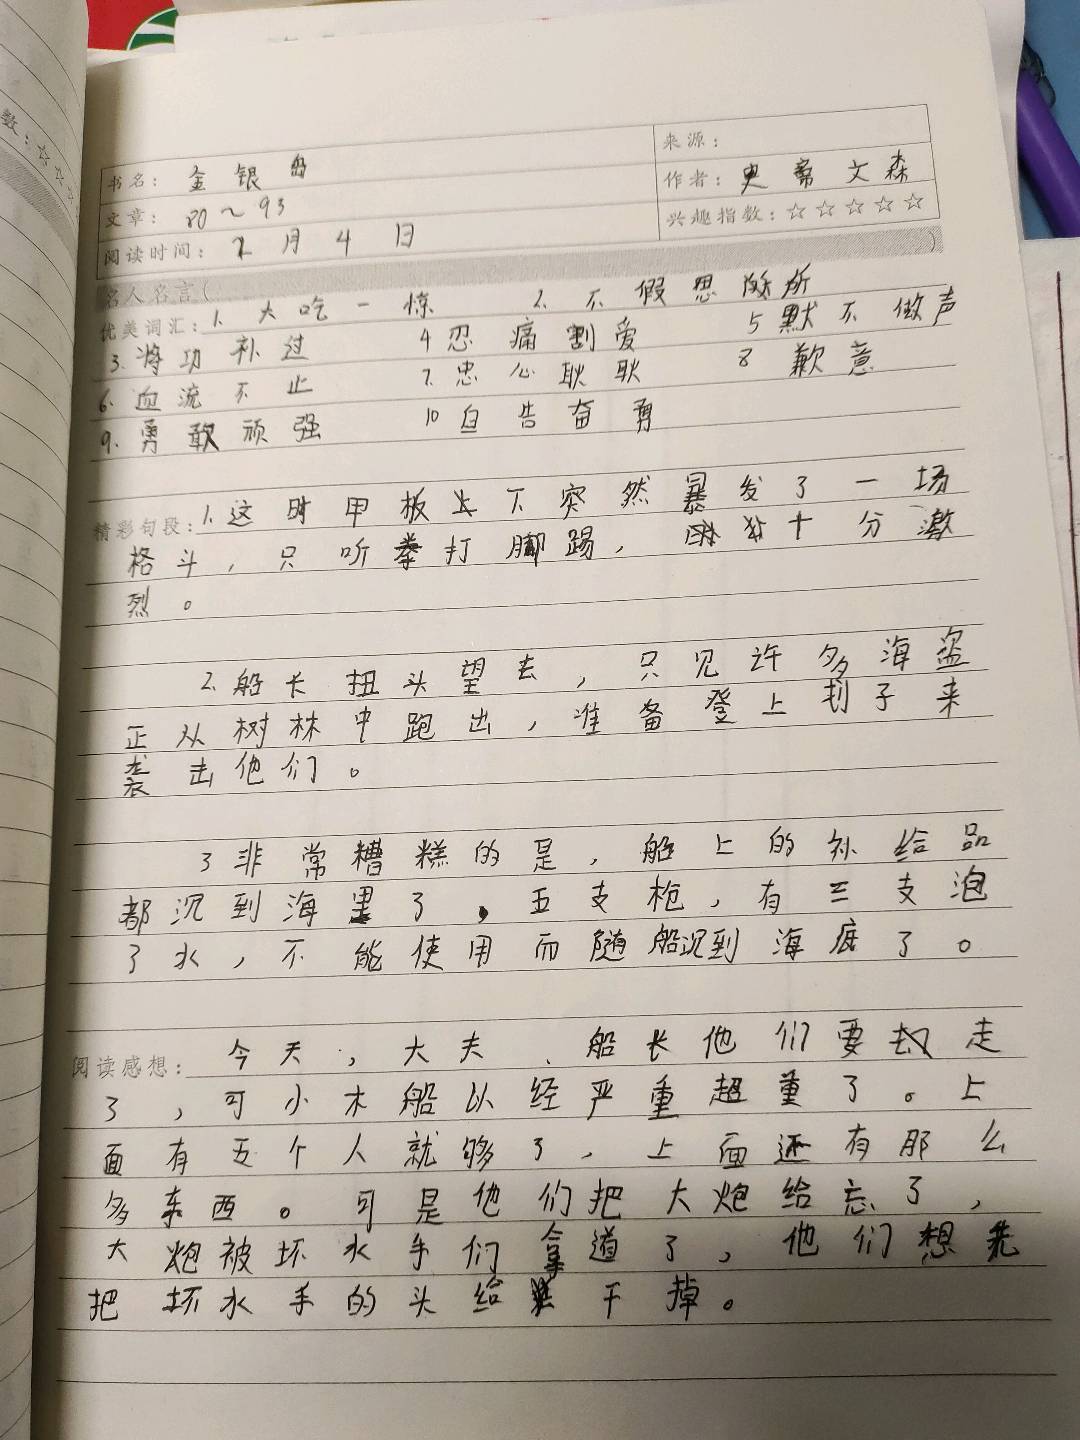 数：☆☆☆
书名：金银岛
来源：
作者：史蒂文森
文章：80～93
兴趣指数：☆☆☆☆☆
阅读时间：2月4日
名人名言（ ）
优美词汇：1.大吃一惊 2.不假思所
3.将功补过 4忍痛割爱 5默不做声
6.血流不止 7.忠心耿耿 8歉意
9.勇敢顽强 10自告奋勇
精彩句段：1.这时甲板上下突然暴发了一场
格斗，只听拳打脚踢，十分激
烈。
2.船长扭头望去，只见许多海盗
正从树林中跑出，准备登上划子来
袭击他们。
3非常糟糕的是，船上的补给品
都沉到海里了，五支枪，有三支泡
了水，不能使用而随船沉到海底了。
阅读感想：今天，大夫、船长他们要走
了，可小木船以经严重超重了。上
面有五个人就够了，上面还有那么
多东西。可是他们把大炮给忘了，
大炮被坏水手们拿道了，他们想先
把坏水手的头给干掉。